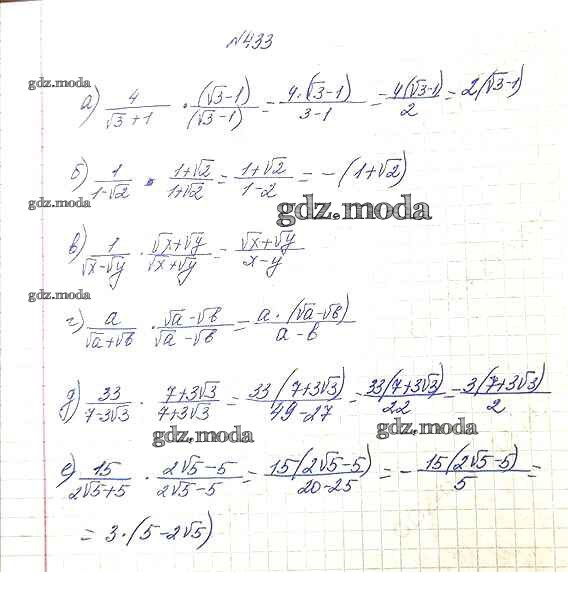 №433
gdz.moda
а) 4/(√3+1) · (√3-1)/(√3-1) = 4·(√3-1)/(3-1) = 4(√3-1)/2 = 2(√3-1)
б) 1/(1-√2) · (1+√2)/(1+√2) = (1+√2)/(1-2) = -(1+√2)
gdz.moda
gdz.moda
в) 1/(√x-√y) · (√x+√y)/(√x+√y) = (√x+√y)/(x-y)
gdz.moda
г) a/(√a+√b) · (√a-√b)/(√a-√b) = a·(√a-√b)/(a-b)
д) 33/(7-3√3) · (7+3√3)/(7+3√3) = 33(7+3√3)/(49-27) = 33(7+3√3)/22 = 3(7+3√3)/2
gdz.moda
gdz.moda
е) 15/(2√5+5) · (2√5-5)/(2√5-5) = 15(2√5-5)/(20-25) = -15(2√5-5)/5 =
= 3·(5-2√5)